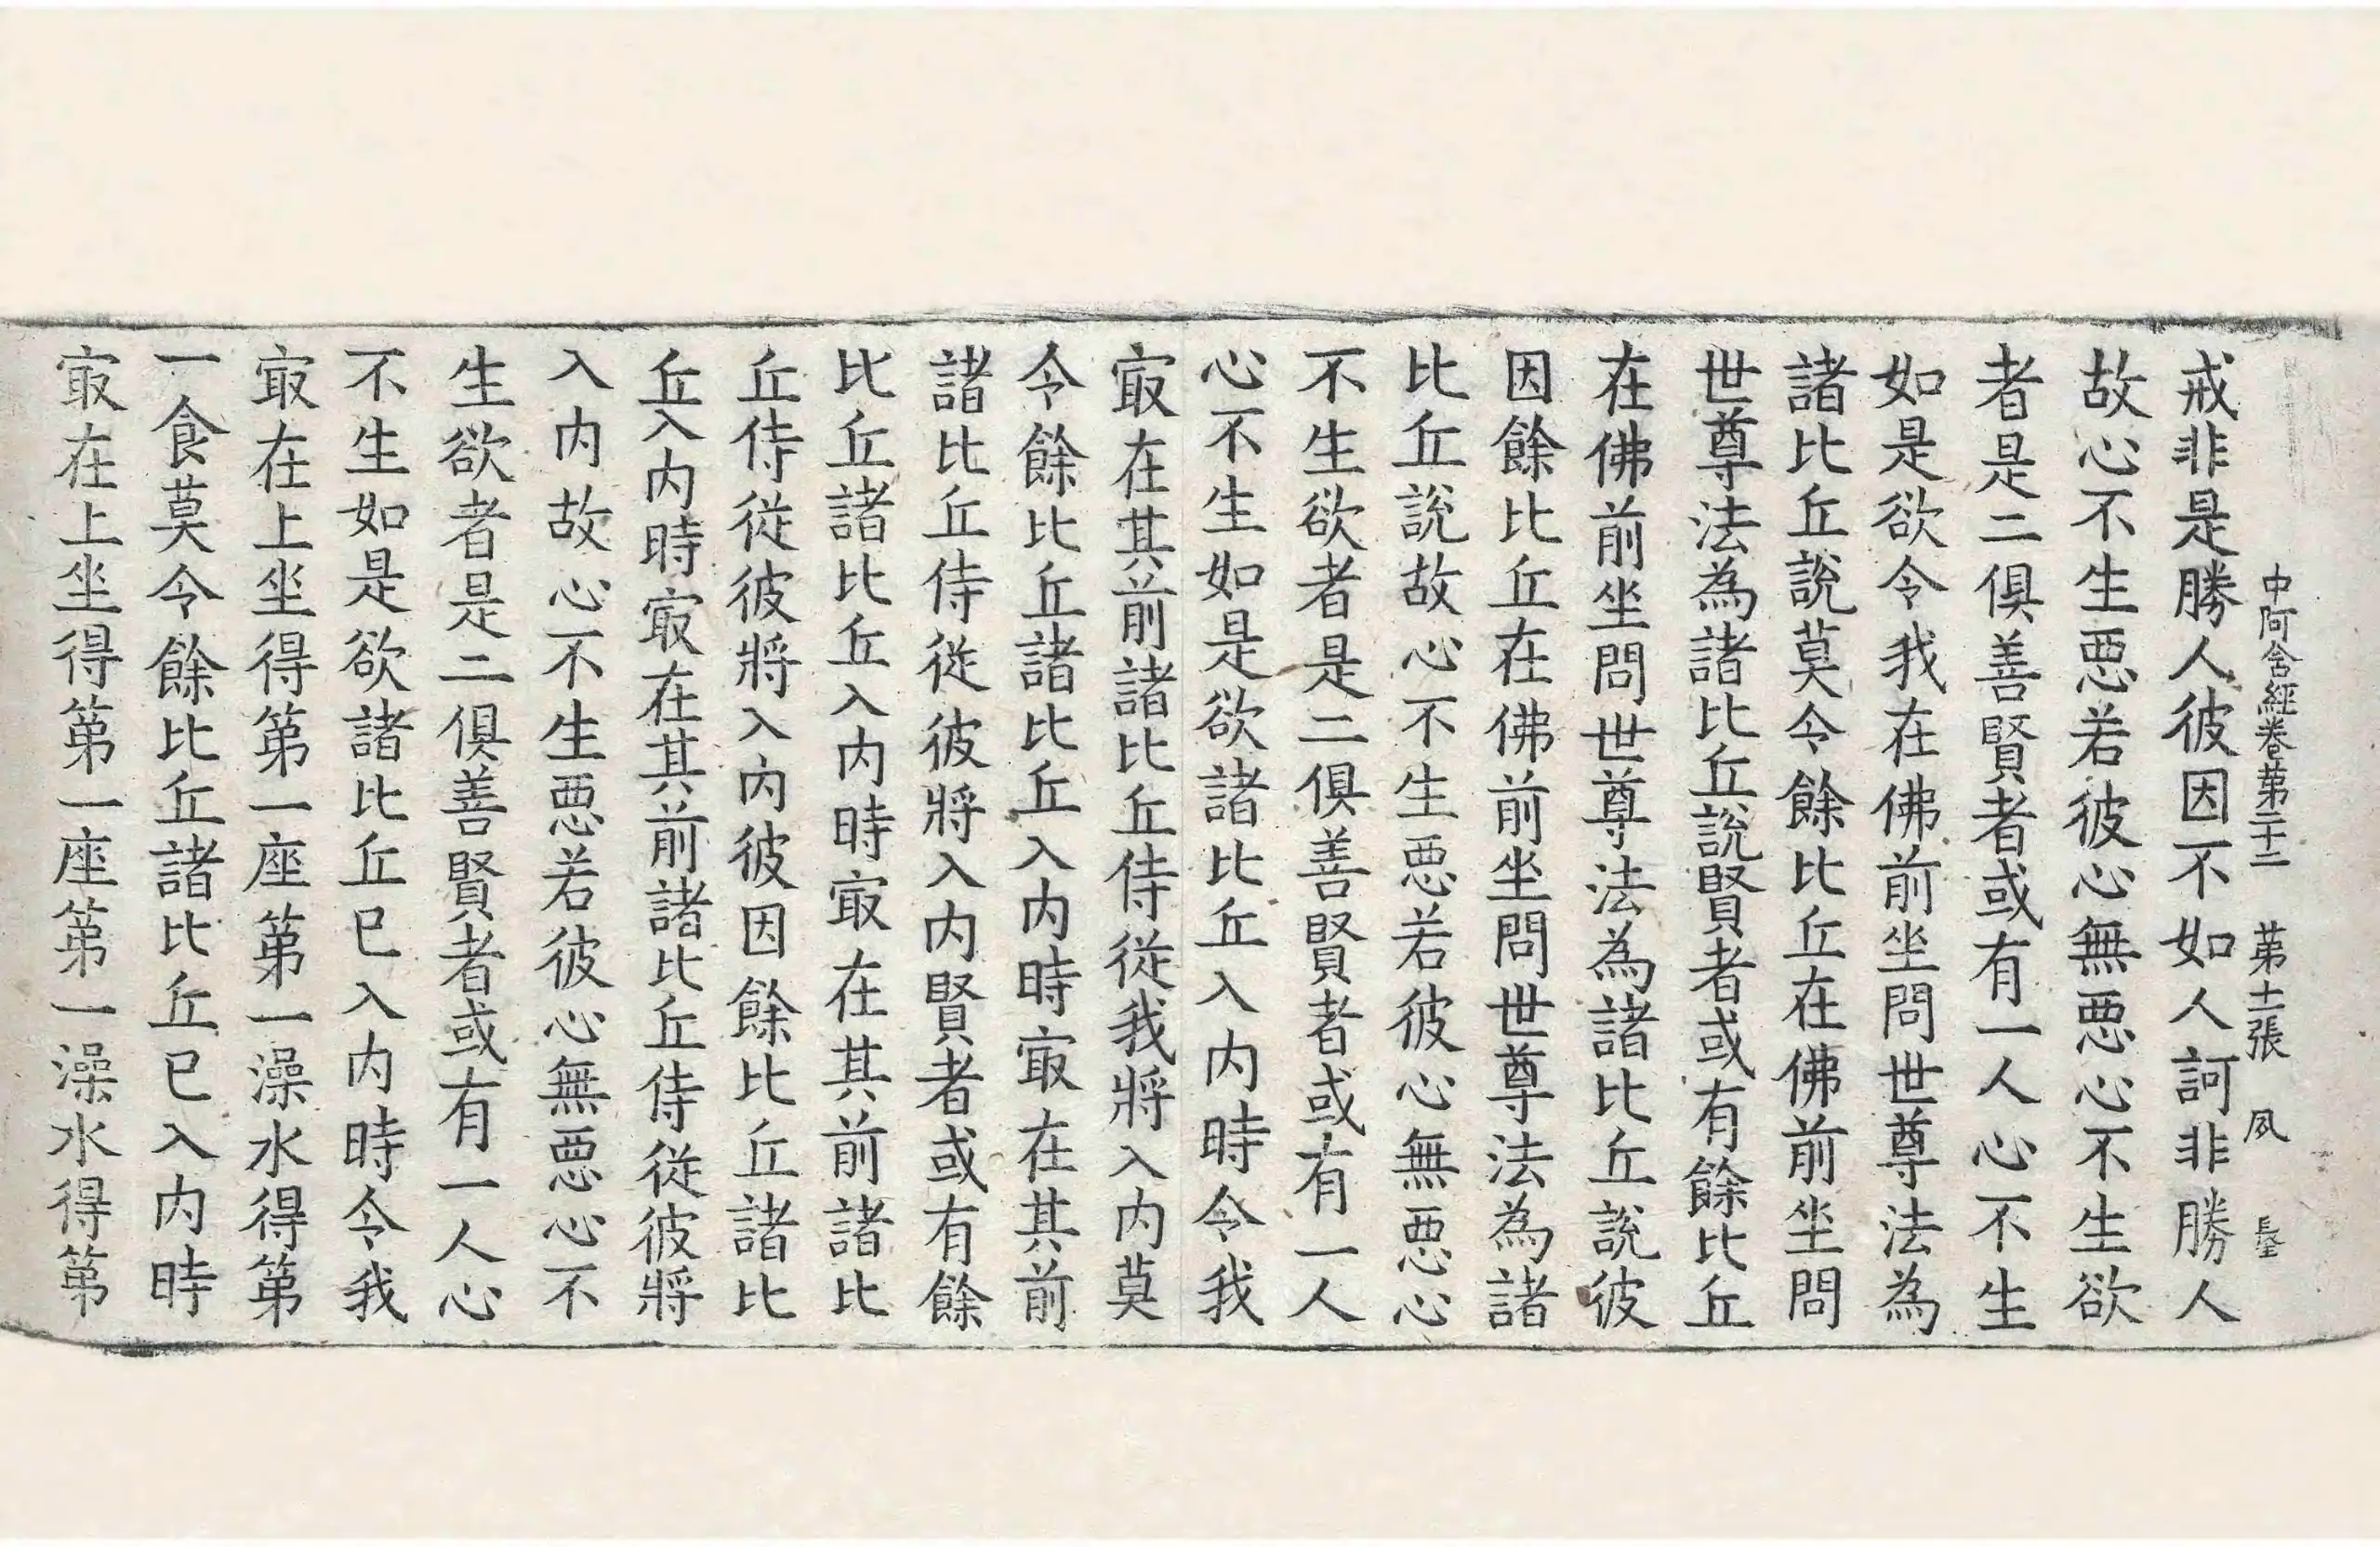 中阿含經卷第二十二 第十二張 夙
戒非是勝人彼因不如人訶非勝人
故心不生惡若彼心無惡心不生欲
者是二俱善賢者或有一人心不生
如是欲令我在佛前坐問世尊法為
諸比丘說莫令餘比丘在佛前坐問
世尊法為諸比丘說賢者或有餘比丘
在佛前坐問世尊法為諸比丘說彼
因餘比丘在佛前坐問世尊法為諸
比丘說故心不生惡若彼心無惡心
不生欲者是二俱善賢者或有一人
心不生如是欲諸比丘入内時令我
㝡在其前諸比丘侍從我將入内莫
令餘比丘諸比丘入内時㝡在其前
諸比丘侍從彼將入内賢者或有餘
比丘諸比丘入内時㝡在其前諸比
丘侍從彼將入内彼因餘比丘諸比
丘入内時㝡在其前諸比丘侍從彼將
入内故心不生惡若彼心無惡心不
生欲者是二俱善賢者或有一人心
不生如是欲諸比丘已入内時令我
㝡在上坐得第一座第一澡水得第
一食莫令餘比丘諸比丘已入内時
㝡在上坐得第一座第一澡水得第